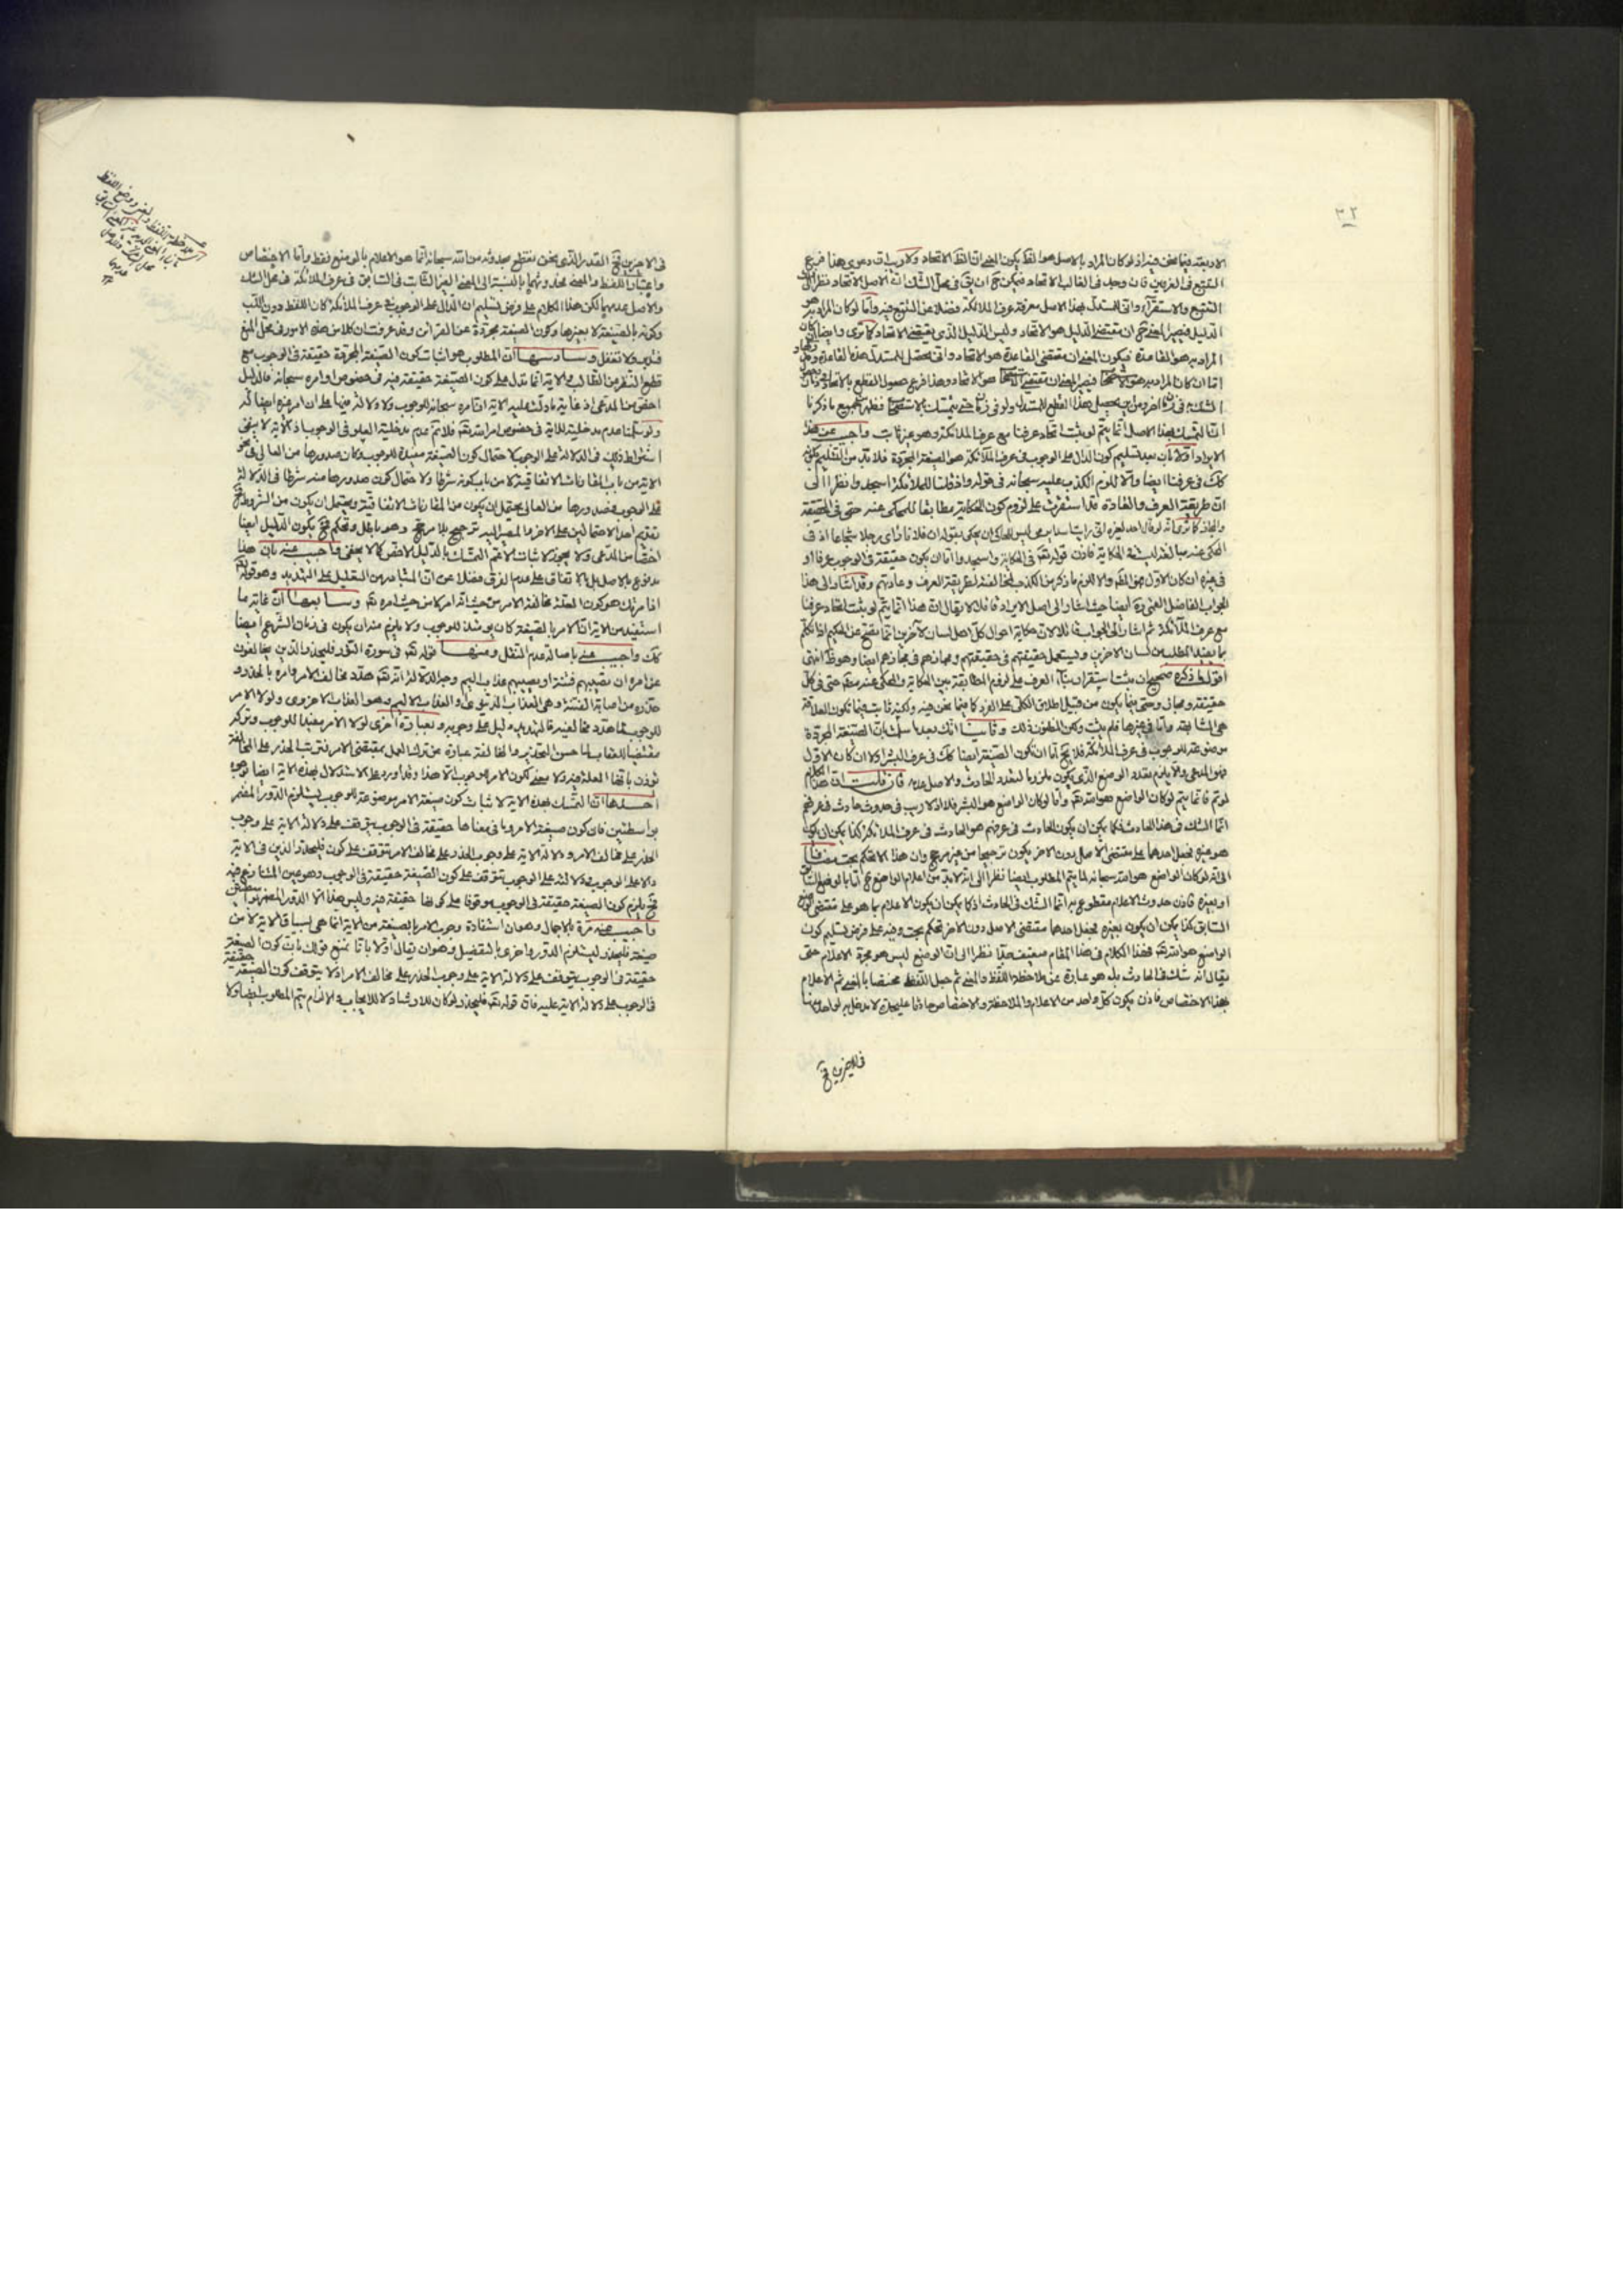 ٣٢
الاربعة فيما نحن فيه اذ لو كان المراد بالاصل هو الغلبة يكون المعنى ان الغلبة الاتحاد ولا ريب ان دعوى هذا فرع
التتبع فى العرفين فان وجد فى الغالب الاتحاد فيمكن ح ان يق فى محل الشك ان الاصل الاتحاد نظرا الى
التتبع والاستقراء وانى للمستدل بهذا الاصل معرفة عرف الملائكة فضلا عن التتبع فيه واما لو كان المراد به هو
الدليل فيصير المعنى ح ان مقتضى الدليل هو الاتحاد وليس الدليل الذى يقتضى الاتحاد كما ترى وايضا ان كان
المراد به هو القاعدة فيكون المعنى ان مقتضى القاعدة هو الاتحاد وانى يحصل للمستدل هذا القاعدة
اما ان كان المراد به هو الاستصحاب فيصير المعنى ان مقتضى الاستصحاب هو الاتحاد وهذا فرع حصول القطع بالاتحاد
الشك فى زمان اخر ومن اين يحصل هذا القطع للمستدل ولو فى زمان حتى يتمسك بالاستصحاب فظهر بمجموع ما ذكرنا
ان التمسك بهذا الاصل انما يتم لو ثبت اتحاد عرفنا مع عرف الملائكة وهو غير ثابت واجيب عن هذا
الايراد اولا بان بعد تسليم كون الدال على الوجوب فى عرف الملائكة هو الصيغة المجردة فلا بد من التسليم بكونه
كك فى عرفنا ايضا والا للزم الكذب عليه سبحانه فى قوله واذ قلنا للملائكة اسجدوا نظرا الى
ان طريقة العرف والعادة قد استقرت على لزوم كون الحكاية مطابقا للمحكى عنه حتى فى الحقيقة
والمجاز كما ترى انه لو قال احد لغيره انى رايت اسدا يرمى ليس للحاكى ان يحكى بقوله ان فلانا رأى رجلا شجاعا اذ فى
المحكى عنه مبالغة ليست فى الحكاية فاذن قوله تعالى فى الحكاية اسجدوا اما ان يكون حقيقة فى الوجوب عرفا او
فى غيره ان كان الاول فهو المط والا للزم ما ذكر من الكذب لمخالفته لطريقة العرف وعادتهم وقد اشار الى هذا
الجواب الفاضل القمى ره ايضا حيث اشار الى اصل الايراد قائلا لا يقال ان هذا انما يتم لو ثبت اتحاد عرفنا
مع عرف الملائكة ثم اشار الى الجواب قائلا لان حكاية احوال كل اهل لسان لآخرين انما يصح عن الحكيم اذا تكلم
بما يفيد المطلب من لسان الاخرين ويستعمل حقيقتهم فى حقيقتهم ومجازهم فى مجازهم ايضا وهو ظ انتهى
اقول ما ذكره صحيح ان ثبت استقرار بناء العرف على لزوم المطابقة بين الحكاية والمحكى عنه مط حتى فى كل
حقيقة ومجاز وحتى فيما يكون من قبيل اطلاق الكلى على الفرد كما فيما نحن فيه ولكنه ثابت فيما تكون العلاقة
هى المشابهة واما فى غيرها فلم يثبت ولكن المظنون ذلك وثانيا انك بعد ما سلمت ان الصيغة المجردة
موضوعة للوجوب فى عرف الملائكة فلا يخ اما ان تكون الصيغة ايضا كك فى عرف البشر اولا ان كان الاول
فهو المدعى والا يلزم تعدد الوضع الذى يكون ملزوما لتعدد الحادث والاصل عدمه فان قلت ان هذا الكلام
لو تم فانما يتم لو كان الواضع هو الله تعالى واما لو كان الواضع هو البشر فلا اذ لا ريب فى حدوث حادث فى عرفهم
انما الشك فى هذا الحادث فكما يمكن ان يكون الحادث فى عرفهم هو الحادث فى عرف الملائكة كذا يمكن ان يكون
هو غيره فجعل احدهما على مقتضى الاصل دون الاخر يكون ترجيحا من غير مرجح وان هذا الا تحكم بحت مضافا
الى انه لو كان الواضع هو الله سبحانه لما يتم المطلوب ايضا نظرا الى انه لا بد من اعلام الواضع ح اما بالوضع السابق
او بغيره فاذن حدوث الاعلام مقطوع به انما الشك فى الحادث اذ كما يمكن ان يكون الاعلام بما هو على مقتضى الوضع
السابق كذا يمكن ان يكون بغيره فجعل احدهما مقتضى الاصل دون الاخر تحكم بحت وفيه على فرض تسليم كون
الواضع هو الله تعالى فهذا الكلام فى هذا المقام ضعيف جدا نظرا الى ان الوضع ليس هو مجرد الاعلام حتى
يقال انه شك فى الحادث بل هو عبارة عن ملاحظة اللفظ والمعنى ثم جعل اللفظ مختصا بالمعنى ثم الاعلام
بهذا الاختصاص فاذن يكون كل واحد من الاعلام والملاحظة والاختصاص حادثا عليحدة لا مدخلية لواحد منها
فى الاخرين فح
فى الاخرين فح القدر الذى نحن نقطع بحدوثه من الله سبحانه انما هو الاعلام بالوضع فقط واما الاختصاص
واعتبار اللفظ والمعنى فحدوثهما بالنسبة الى المعنى الغير الثابت فى السابق فى عرف الملائكة فى محل الشك
والاصل عدمهما لكن هذا الكلام على فرض تسليم ان الدال على الوجوب فى عرف الملائكة كان اللفظ دون الكتب
وكونه بالصيغة لا بغيرها وكون الصيغة مجردة عن القرائن وقد عرفت ان كلا من هذه الامور فى محل المنع
فتدبر ولا تغفل وسادسها ان المطلوب هو اثبات كون الصيغة المجردة حقيقة فى الوجوب مع
قطع النظر عن الطالب والاية انما تدل على كون الصيغة حقيقة فيه فى خصوص اوامره سبحانه فالدليل
اخص من المدعى اذ غاية ما دلت عليه الاية ان امره سبحانه للوجوب ولا دلالة فيها على ان امر غيره ايضا كك
ولو سلمنا عدم مدخلية للاية فى خصوص امر الله تعالى فلا نم عدم مدخلية العلو فى الوجوب اذ الاية لا ينفى
اشتراط ذلك فى الدلالة على الوجوب لاحتمال كون الصيغة مفيدة للوجوب وكان صدورها من العالى فى نحو
الاية من باب المقارنات الاتفاقية لا من باب كونه شرطا ولاحتمال كون صدورها منه شرطا فى الدلالة
على الوجوب فصدورها من العالى يحتمل ان يكون من المقارنات الاتفاقية ويحتمل ان يكون من الشروط فح
تقديم احد الاحتمالين على الاخر والمصير اليه ترجيح بلا مرجح وهو باطل وتحكم فح يكون الدليل ايضا
اخص من المدعى ولا يجوز لاثبات الاعم التمسك بالدليل الاخص كما لا يخفى واجيب عنه بان هذا
مدفوع بالاصل بل بالاتفاق على عدم الفرق فضلا عن ان المتبادر من التعليل على التهديد وهو قوله تعالى
اذ امرتك هو كون العلة مخالفة الامر من حيث انه امر لا من حيث امره تعالى وسابعها ان غاية ما
استفيد من الاية ان الامر بالصيغة كان يومئذ للوجوب ولا يلزم منه ان يكون فى زمان الشرع ايضا
كك واجيب عنه باصالة عدم النقل ومنها قوله تعالى فى سورة النور فليحذر الذين يخالفون
عن امره ان تصيبهم فتنة او يصيبهم عذاب اليم وجه الدلالة انه تعالى هدد مخالف الامر وامره بالحذر و
حذره من اصابة الفتنة وهى العذاب الدنيوى او العذاب الاليم وهو العذاب الاخروى ولولا الامر
للوجوب لما هدد مخالفيه فالتهديد دليل على وجوبه وبعبارة اخرى لولا الامر مفيدا للوجوب وتركه
مقتضيا للعقاب لما حسن التحذير والمخالفة عبارة عن ترك العمل بمقتضى الامر فترتب الحذر على المخالفة
يؤذن بانها العلة فيه ولا معنى لكون الامر للوجوب الا هذا وقد اورد على الاستدلال بهذه الاية ايضا بوجوه
احدها ان التمسك بهذه الاية لاثبات كون صيغة الامر موضوعة للوجوب يستلزم الدور المضمر
بواسطتين فان كون صيغة الامر وما فى معناها حقيقة فى الوجوب يتوقف على دلالة الاية على وجوب
الحذر على مخالف الامر ودلالة الاية على وجوب الحذر على مخالف الامر يتوقف على كون فليحذر الذين فى الاية
دالا على الوجوب ودلالته على الوجوب تتوقف على كون الصيغة حقيقة فى الوجوب وهو عين المتنازع فيه
فح يلزم كون الصيغة حقيقة فى الوجوب موقوفا على كونها حقيقة فيه وليس هذا الا الدور المضمر بواسطتين
واجيب عنه تارة بالاجمال وهو ان استفادة وجوب الامر بالصيغة من الاية انما هى لسياق الاية لا من
صيغة فليحذر ليستلزم الدور واخرى بالتفصيل وهو ان يقال اولا بانا نمنع قولك بان كون الصيغة
حقيقة فى الوجوب يتوقف على دلالة الاية على وجوب الحذر على مخالف الامر اذ لا يتوقف كون الصيغة حقيقة
فى الوجوب على دلالة الاية عليه فان قوله تعالى فليحذر لو كان للارشاد لا للايجاب والالزام يتم المطلوب ايضا ولا